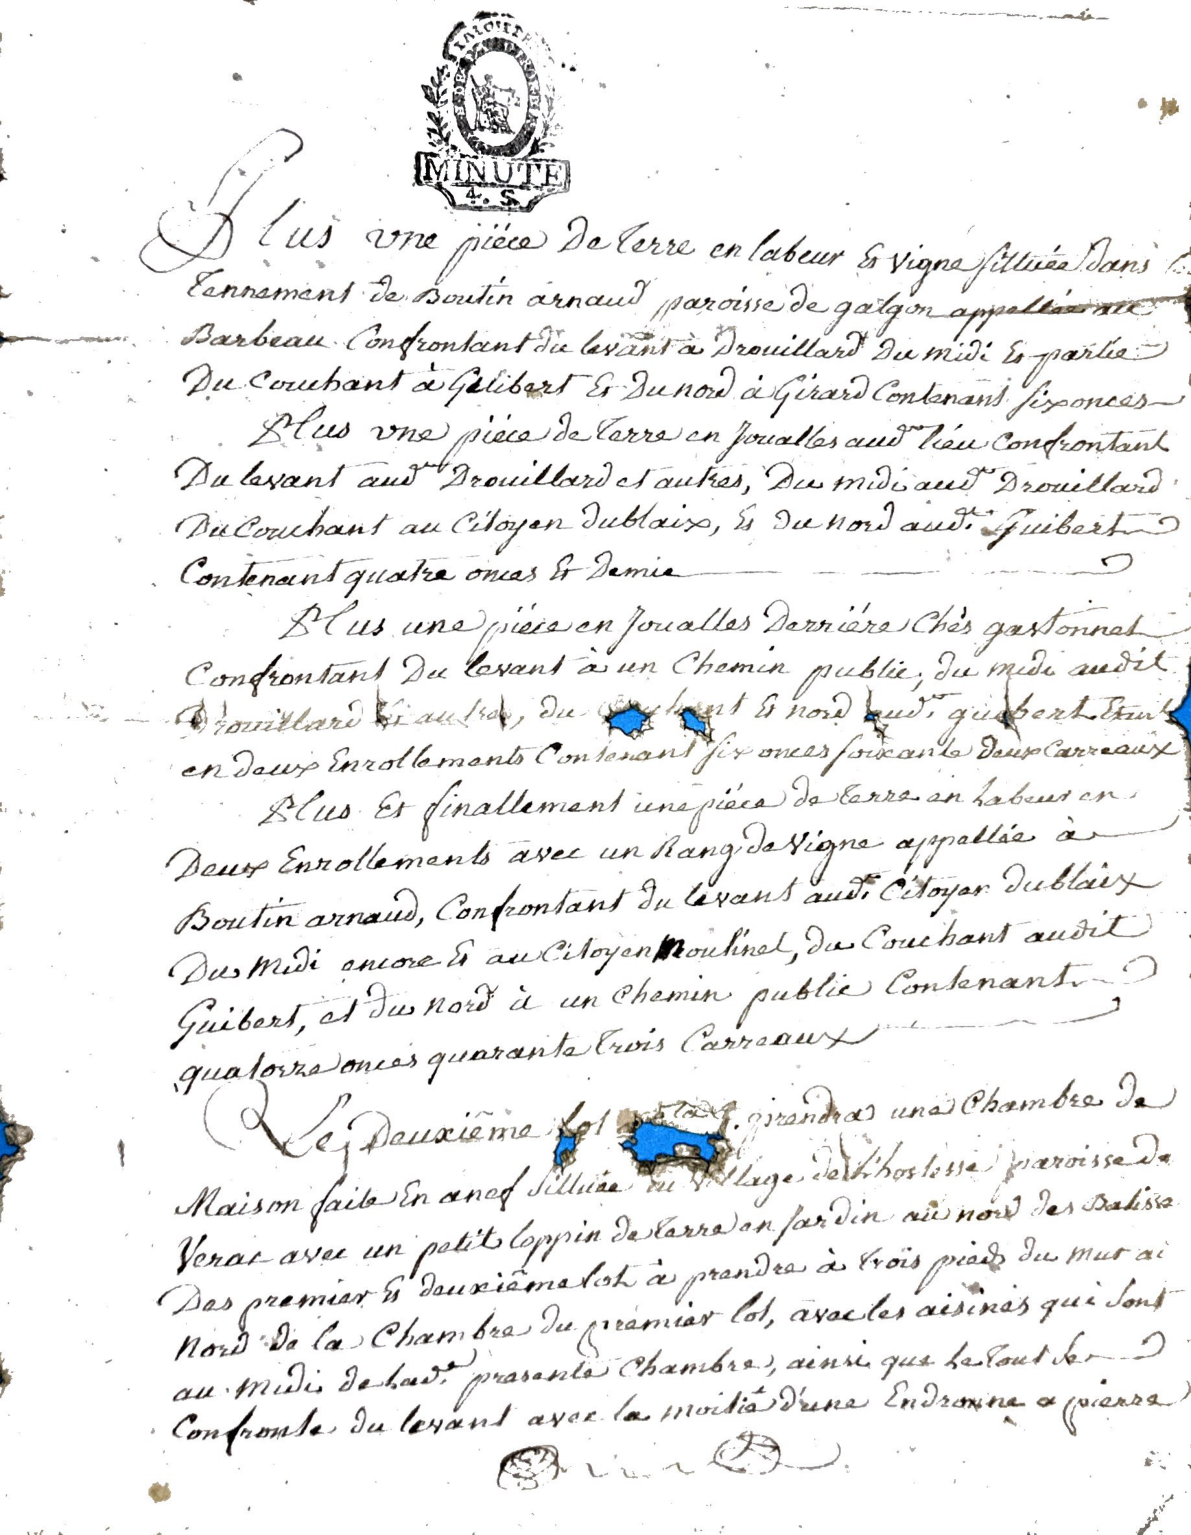 MINUTE
4. S.
Plus vne piéce De Terre en labeur Et Vigne sittuée dans
Tennement de Boutin arnaud paroisse de galgon appellée au
Barbeau Confrontant du levant à Drouillard Du midi Et partie
Du Couchant à Guibert Et Du nord à Girard Contenant six onces
Plus vne piéce de Terre en Joualles aud. lieu Confrontant
Du levant aud. Drouillard et autres, Du midi aud. Drouillard
Du Couchant au Citoyen dublaix, Et du nord aud. Guibert
Contenant quatre onces Et Demie
Plus une piéce en Joualles Derriére Chés gastonnet
Confrontant Du levant à un Chemin public, du midi audit
Drouillard Et autres, du Couchant Et nord aud. guibert
en deux Enrollements Contenant six onces soixante deux Carreaux
Plus Et finallement une piéce de terre en labeur en
Deux Enrollements avec un Rang de Vigne appellée à
Boutin arnaud, Confrontant du levant aud. Citoyen dublaix
Du Midi encore Et au Citoyen Moulinet, du Couchant audit
Guibert, et du nord à un chemin public Contenant
quatorze onces quarante Trois Carreaux
Le Deuxiême lot prendra une Chambre de
Maison faite En anef sittuée au Village de l'hostesse paroisse de
Verac avec un petit loppin de Terre en Jardin au nord des Batisse
Des premier Et deuxiême lot à prendre à trois pieds du mur au
Nord de la Chambre du premier lot, avec les aisines qui sont
au Midi de lad. presente Chambre, ainsi que le Tout se
Confronte du levant avec la moitié d'une Endronne a pierre